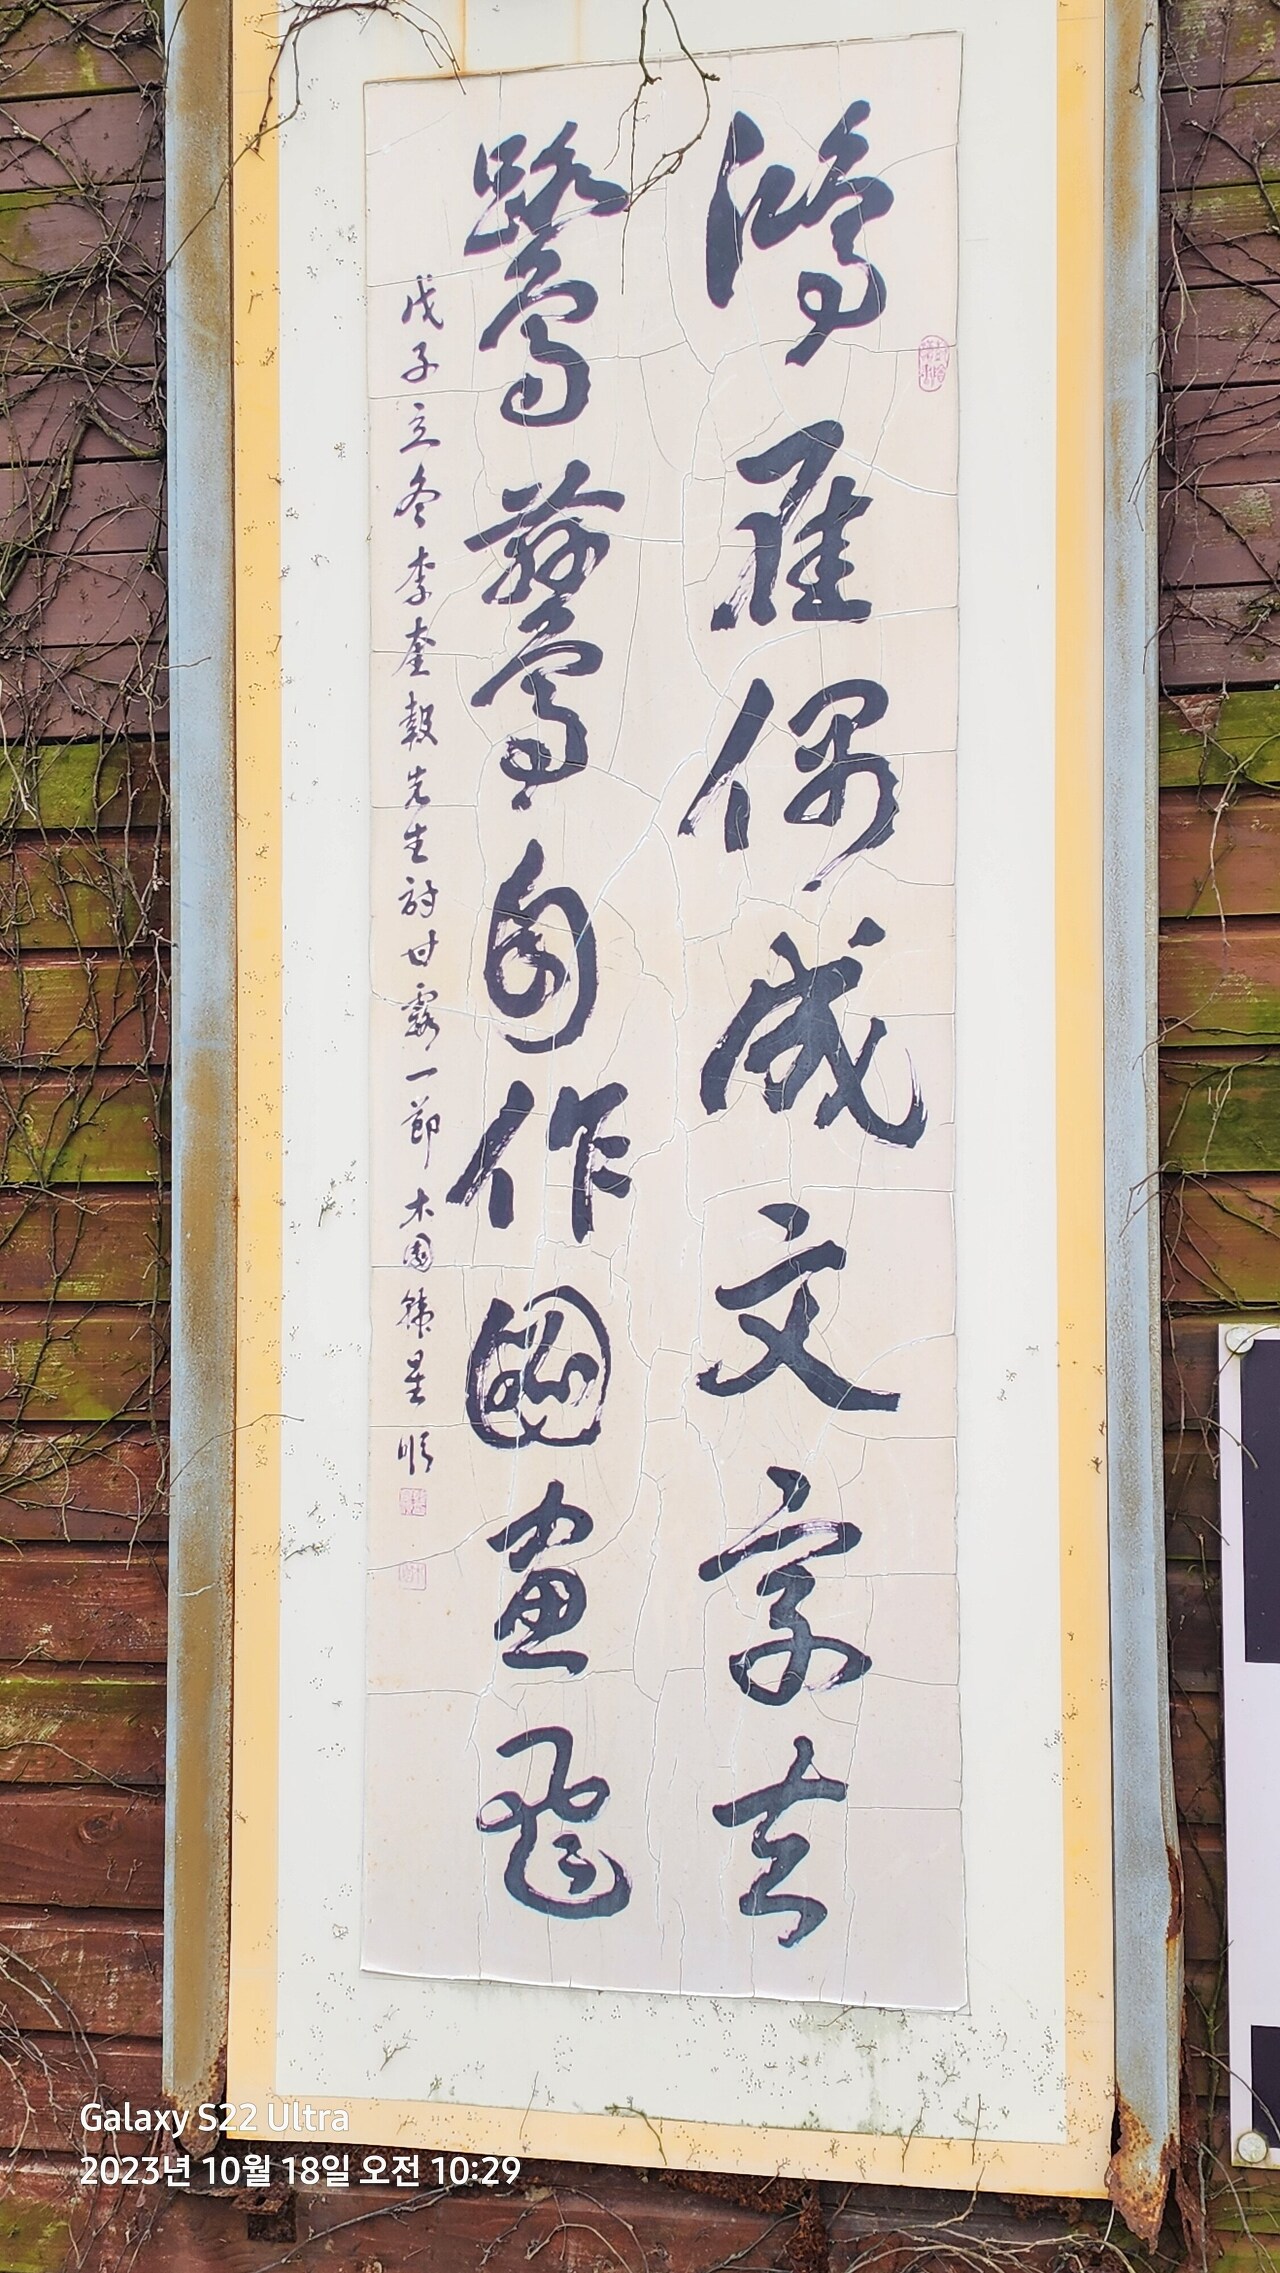 鴻雁偶成文字去
鷺鷥自作圖畫飛
戊子立冬李奎報先生詩甘露一節 木園 韓星順
Galaxy S22 Ultra
2023년 10월 18일 오전 10:29